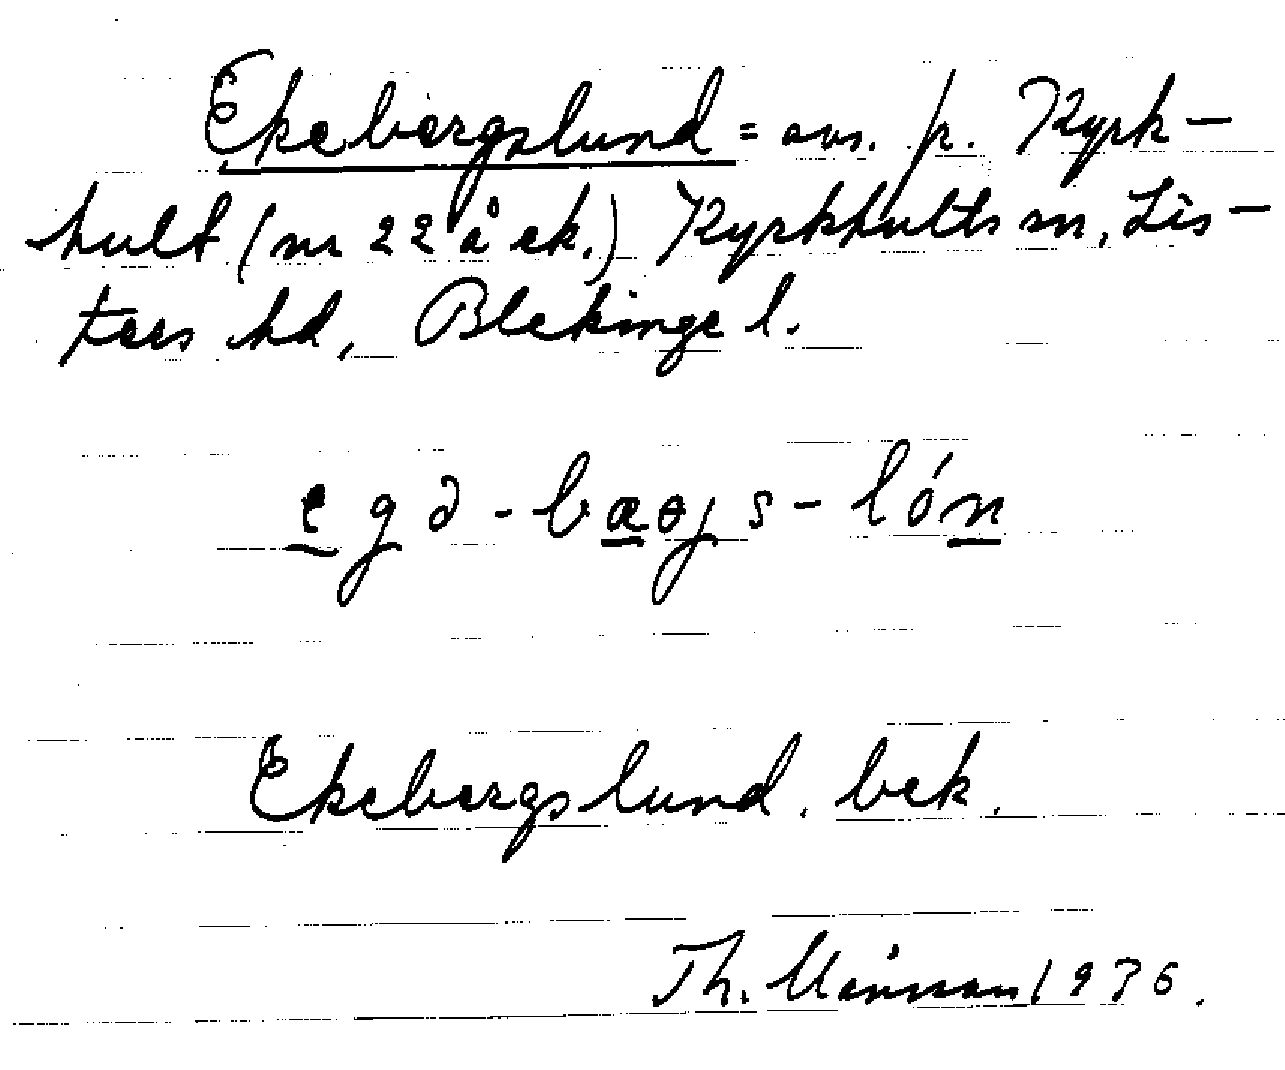 Ekebergslund = avs. p. Kyrk-
hult (nr 22 å ek.) Kyrkhults sn, Lis-
ters hd, Blekinge l.
egə-bæɵjs-lón
Ekebergslund. bek.
Th. Månsson 1936.